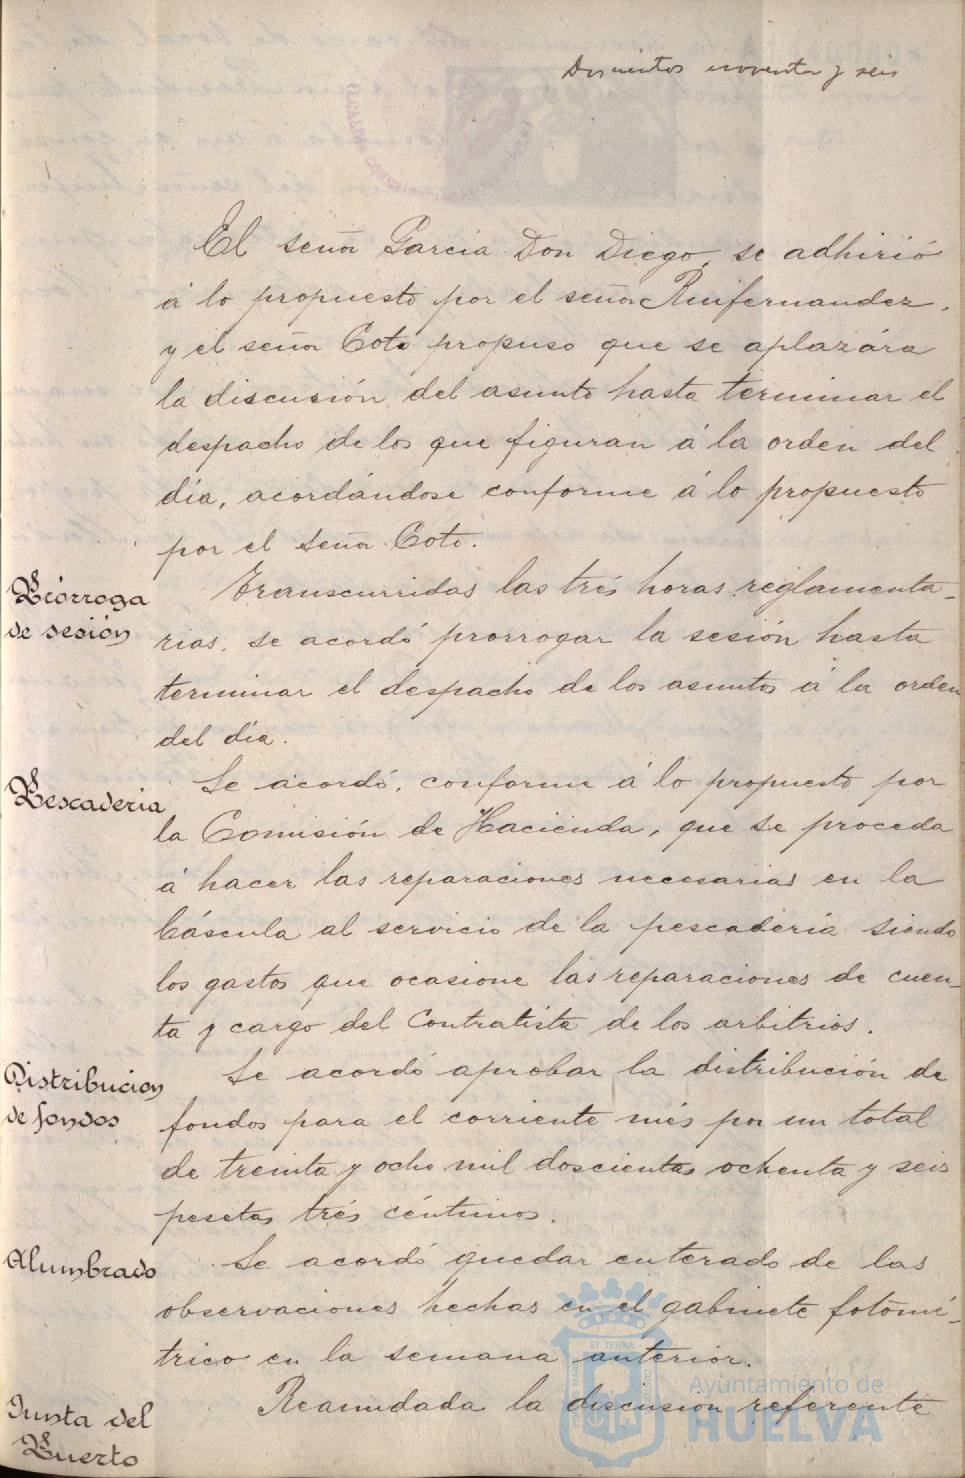 Doscientos noventa y seis
El señor Garcia Don Diego, se adhirió
á lo propuesto por el señor Ruifernandez,
y el señor Coto propuso que se aplazára
la discusión del asunto hasta terminar el
despacho de los que figuran á la orden del
día, acordándose conforme á lo propuesto
por el señor Coto.
Prórroga
de sesión
Transcurridas las trés horas reglamenta-
rias, se acordó prorrogar la sesión hasta
terminar el despacho de los asuntos á la orden
del día.
Pescaderia
Se acordó, conforme á lo propuesto por
la Comisión de Hacienda, que se proceda
á hacer las reparaciones necesarias en la
báscula al servicio de la pescadería siendo
los gastos que ocasione las reparaciones de cuen-
ta y cargo del Contratista de los arbitrios.
Distribucion
de fondos
Se acordó aprobar la distribución de
fondos para el corriente més por un total
de treinta y ocho mil doscientas ochenta y seis
pesetas trés céntimos.
Alumbrado
Se acordó quedar enterado de las
observaciones hechas en el gabinete fotomé-
trico en la semana anterior.
Junta del
Puerto
Reanudada la discusión referente
Ayuntamiento de
HUELVA